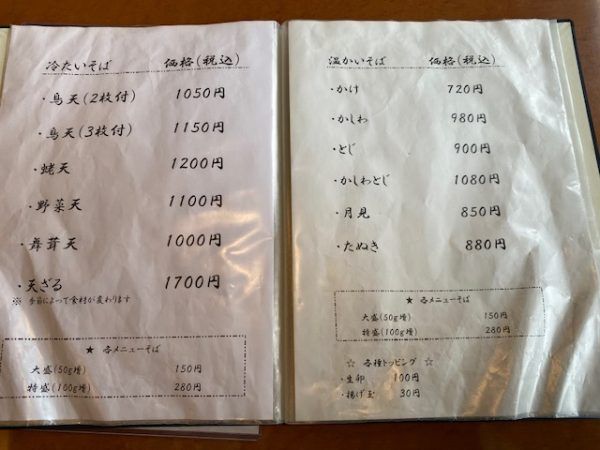 冷たいそば 価格(税込)
・鳥天(2枚付) 1050円
・鳥天(3枚付) 1150円
・蛯天 1200円
・野菜天 1100円
・舞茸天 1000円
・天ざる 1700円
※ 季節によって食材が変わります
★ 各メニューそば
大盛(50g増) 150円
特盛(100g増) 280円
温かいそば 価格(税込)
・かけ 720円
・かしわ 980円
・とじ 900円
・かしわとじ 1080円
・月見 850円
・たぬき 880円
★ 各メニューそば
大盛(50g増) 150円
特盛(100g増) 280円
☆ 各種トッピング ☆
・生卵 100円
・揚げ玉 30円